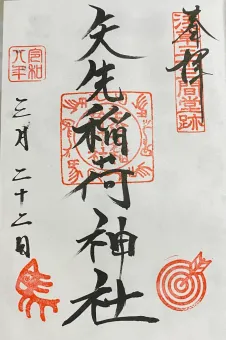 奉拝
浅草三十三間堂跡
矢先稲荷神社
令和
年
三月二十二日